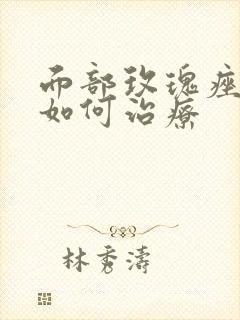 而部玫瑰痤
如何治療
林秀濤